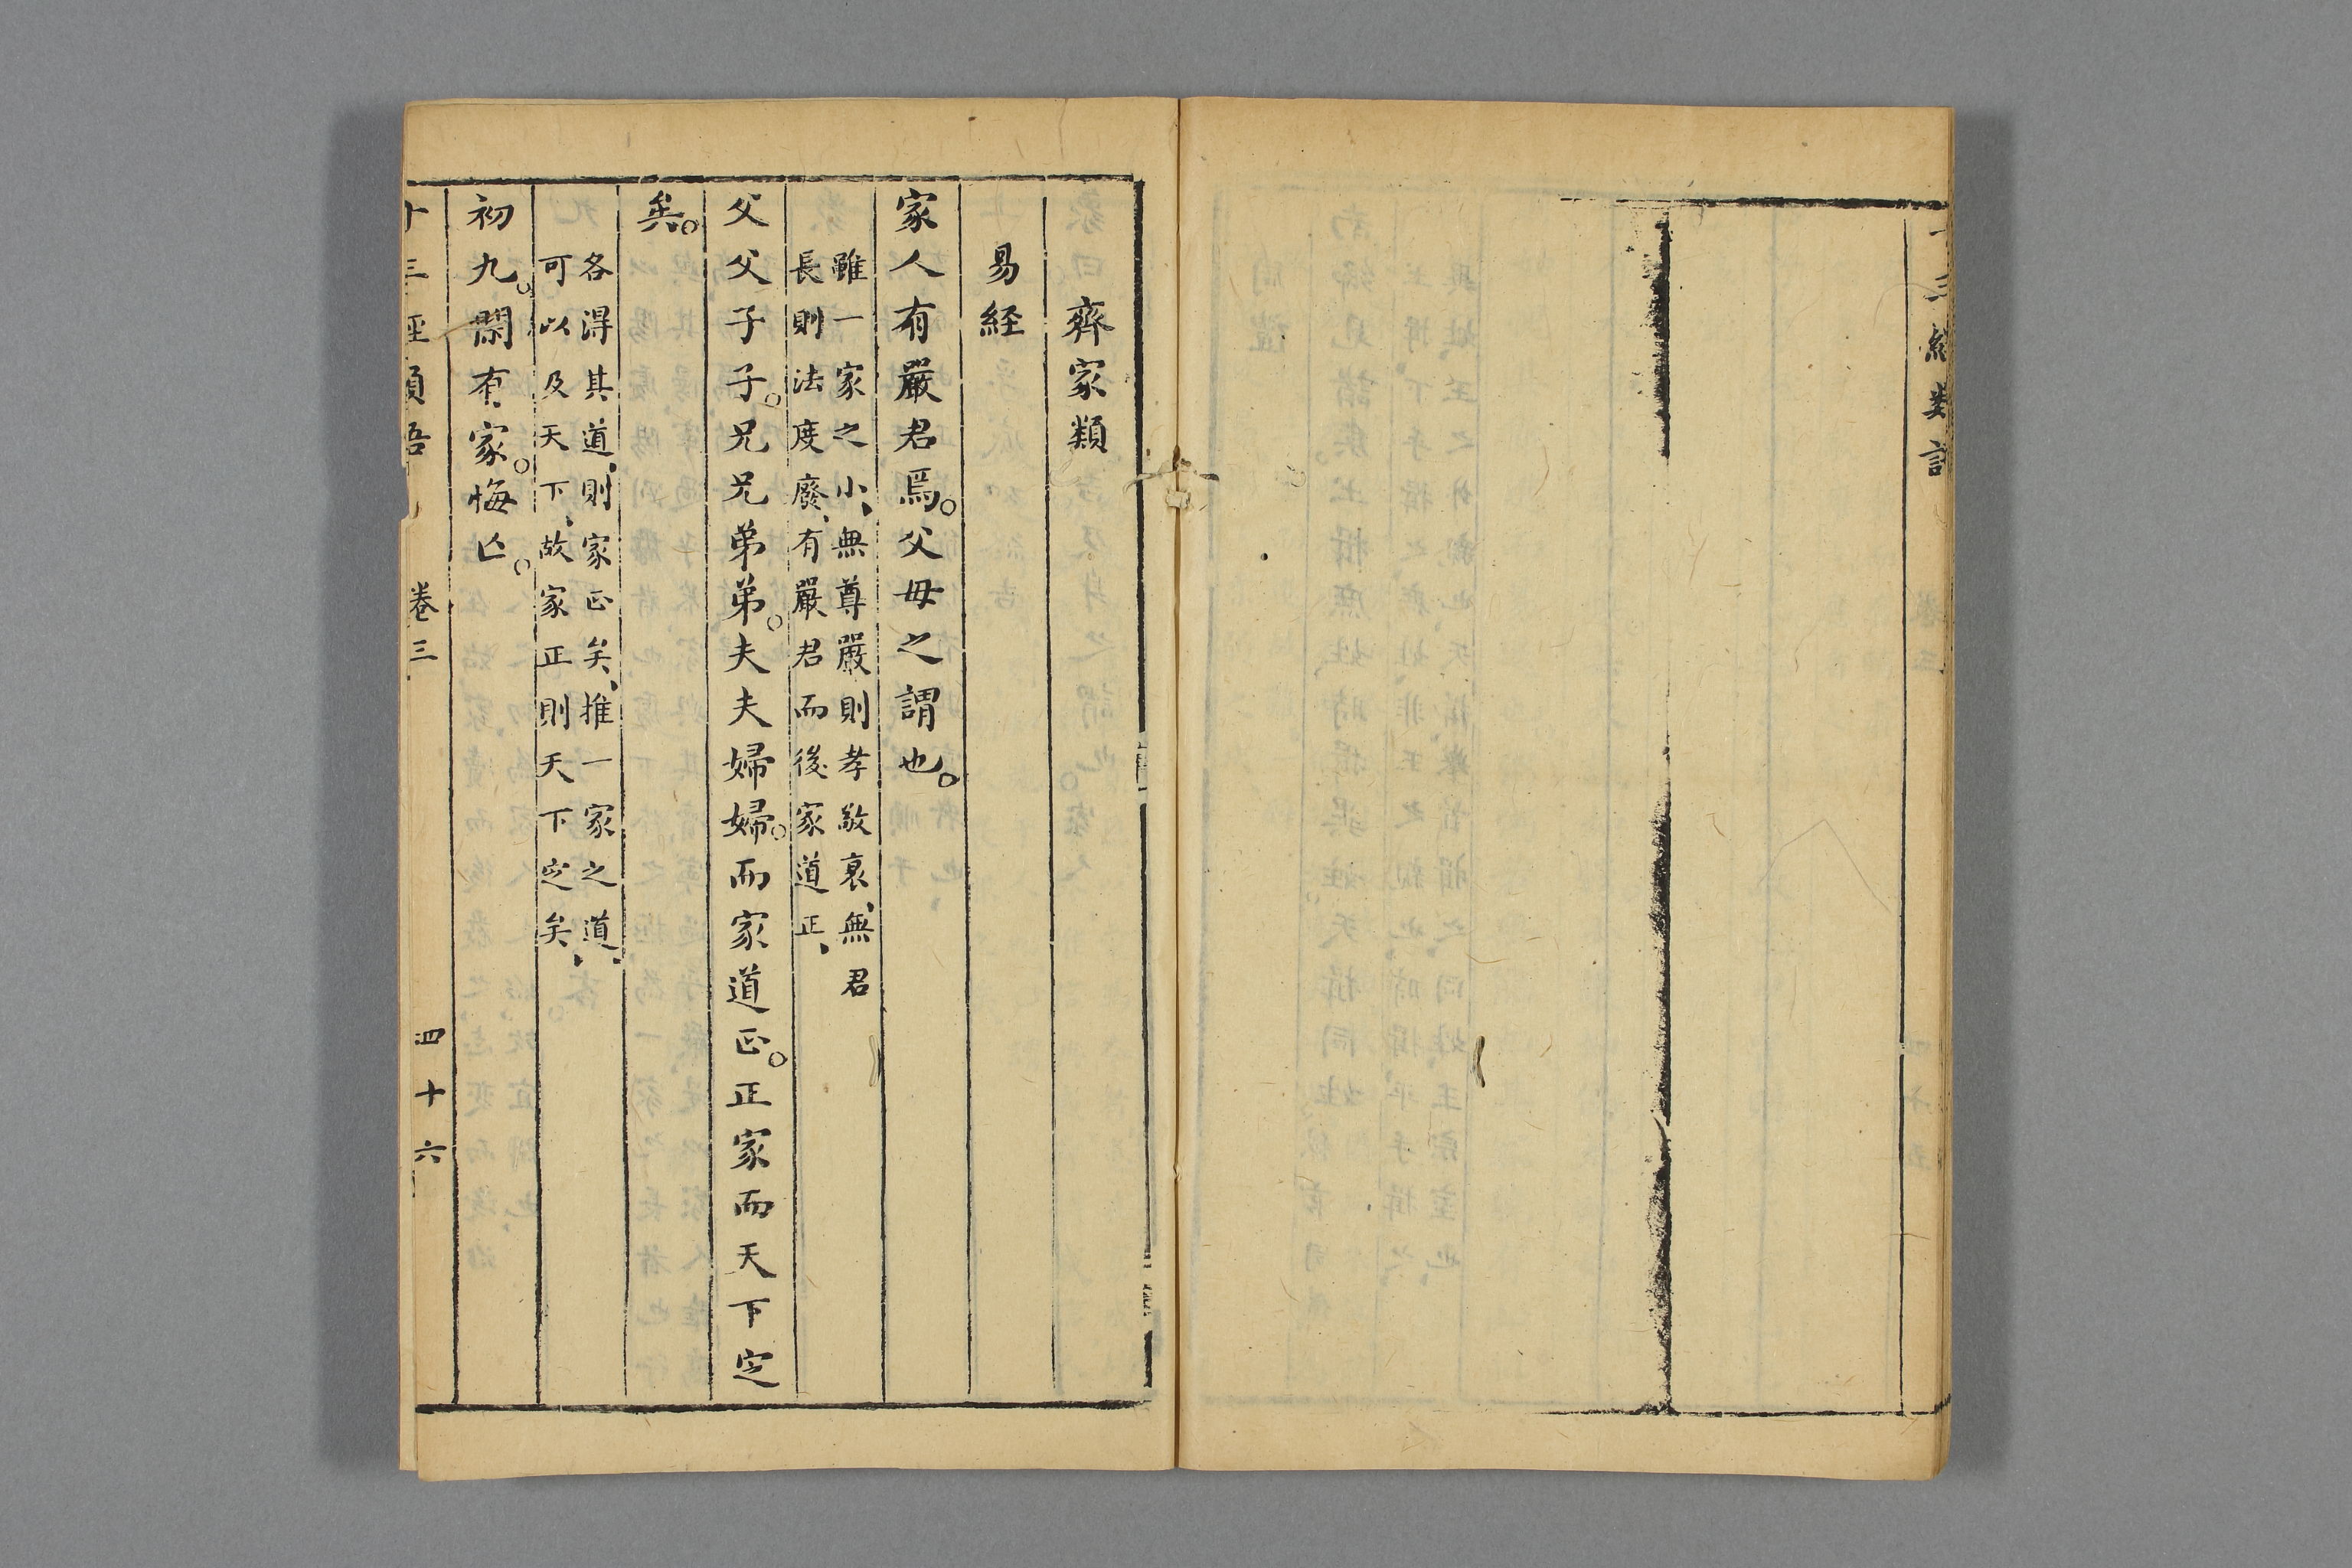 十三經類語
齊家類
易経
家人有嚴君焉。父母之謂也。
雖一家之小、無尊嚴則孝敬衰、無君
長則法度廢、有嚴君而後家道正、
父父子子。兄兄弟弟。夫夫婦婦。而家道正。正家而天下定
矣。
各得其道、則家正矣、推一家之道、
可以及天下、故家正則天下定矣、
初九。閑有家。悔亾。
十三経類語 卷三 四十六